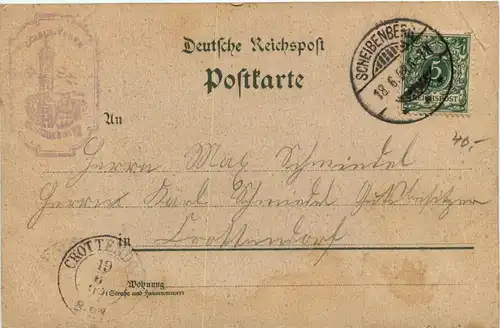 Deutsche Reichspost
Postkarte
SCHEIBENBERG
18 6
5
REICHSPOST
40,-
An
Herrn Max Schmiedel
Herrn Karl Schmiedel Gutsbesitzer
in Crottendorf
CROTTEND
19
6
Wohnung
(Straße und Hausnummer)